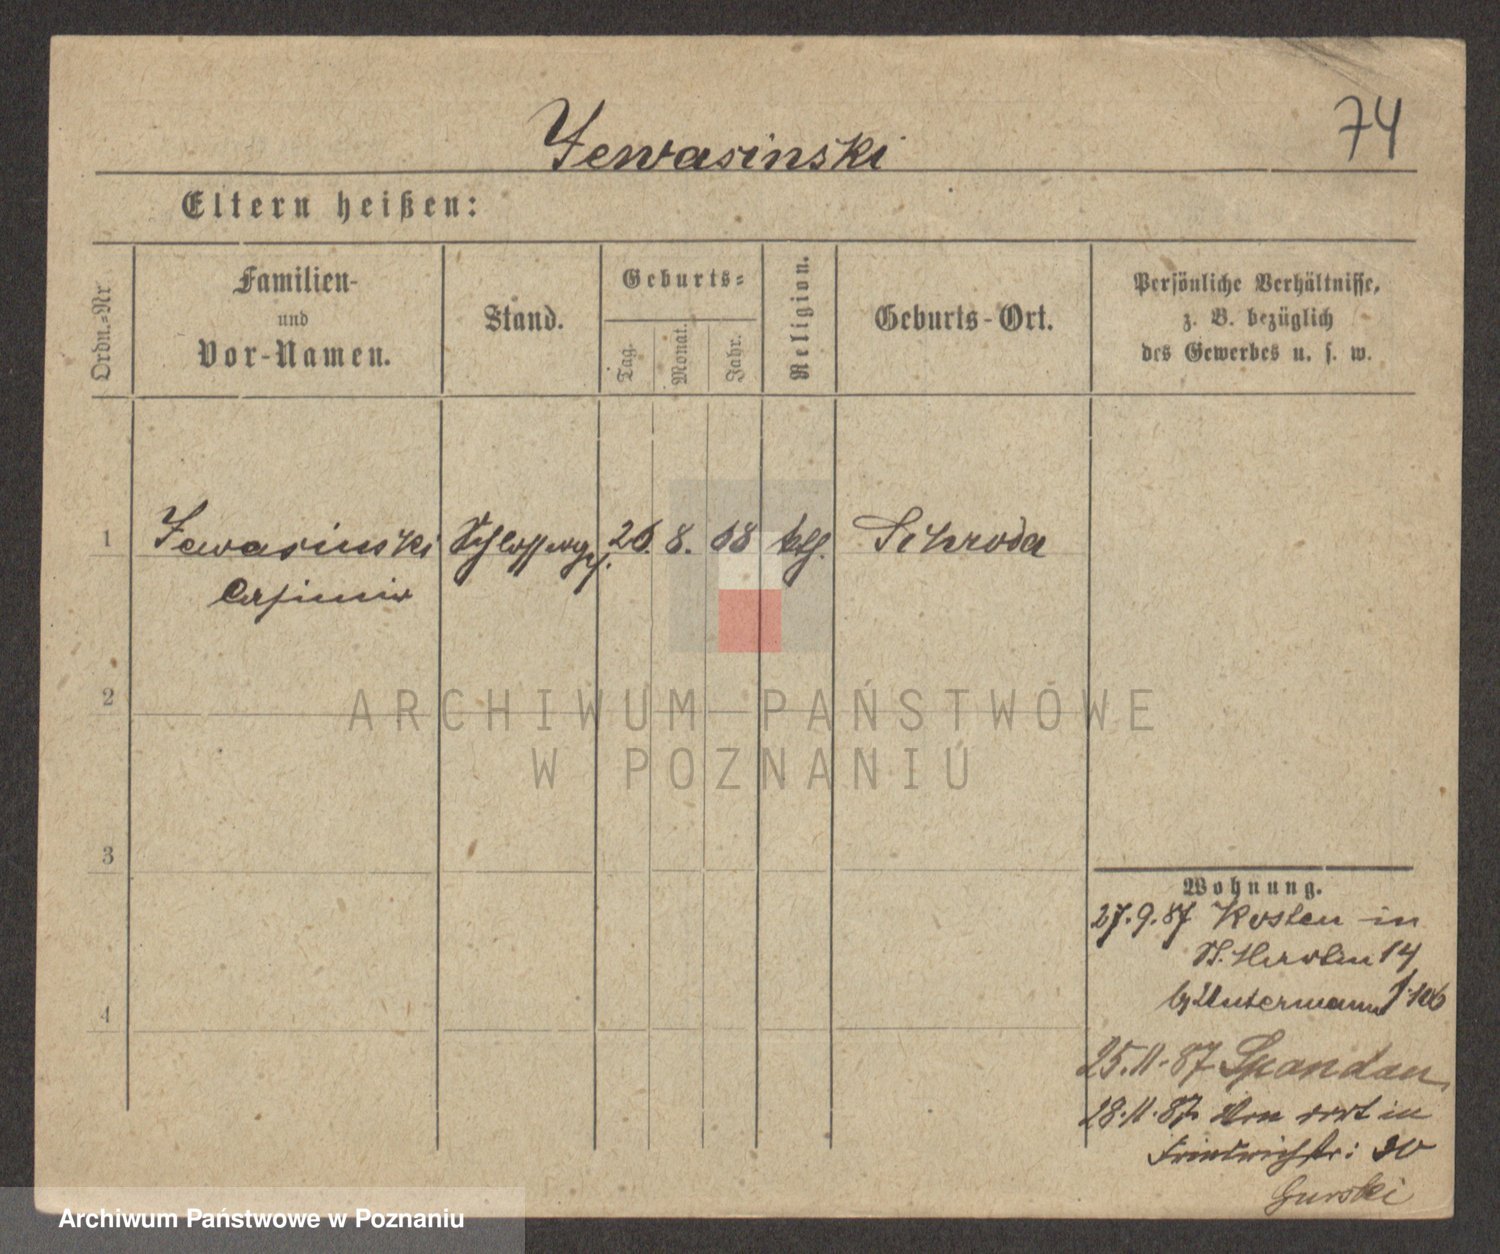 Jewasinski
74
Eltern heißen:
Ordn.-Nr
Familien-
und
Vor-Namen.
Stand.
Geburts-
Tag.
Monat.
Jahr.
Religion.
Geburts-Ort.
Persönliche Verhältnisse,
z. B. bezüglich
des Gewerbes u. s. w.
1 Jewasinski Schlosserges. 26. 8. 68 kth. Schroda
Casimir
2
ARCHIWUM PAŃSTWOWE
W POZNANIU
3
Wohnung.
27.9.87 Kosten in
St. 14
b/ Untermann
4
25.11.87 Spandau
28.11.87 von dort in
Friedrichstr: 30
Gurski
Archiwum Państwowe w Poznaniu